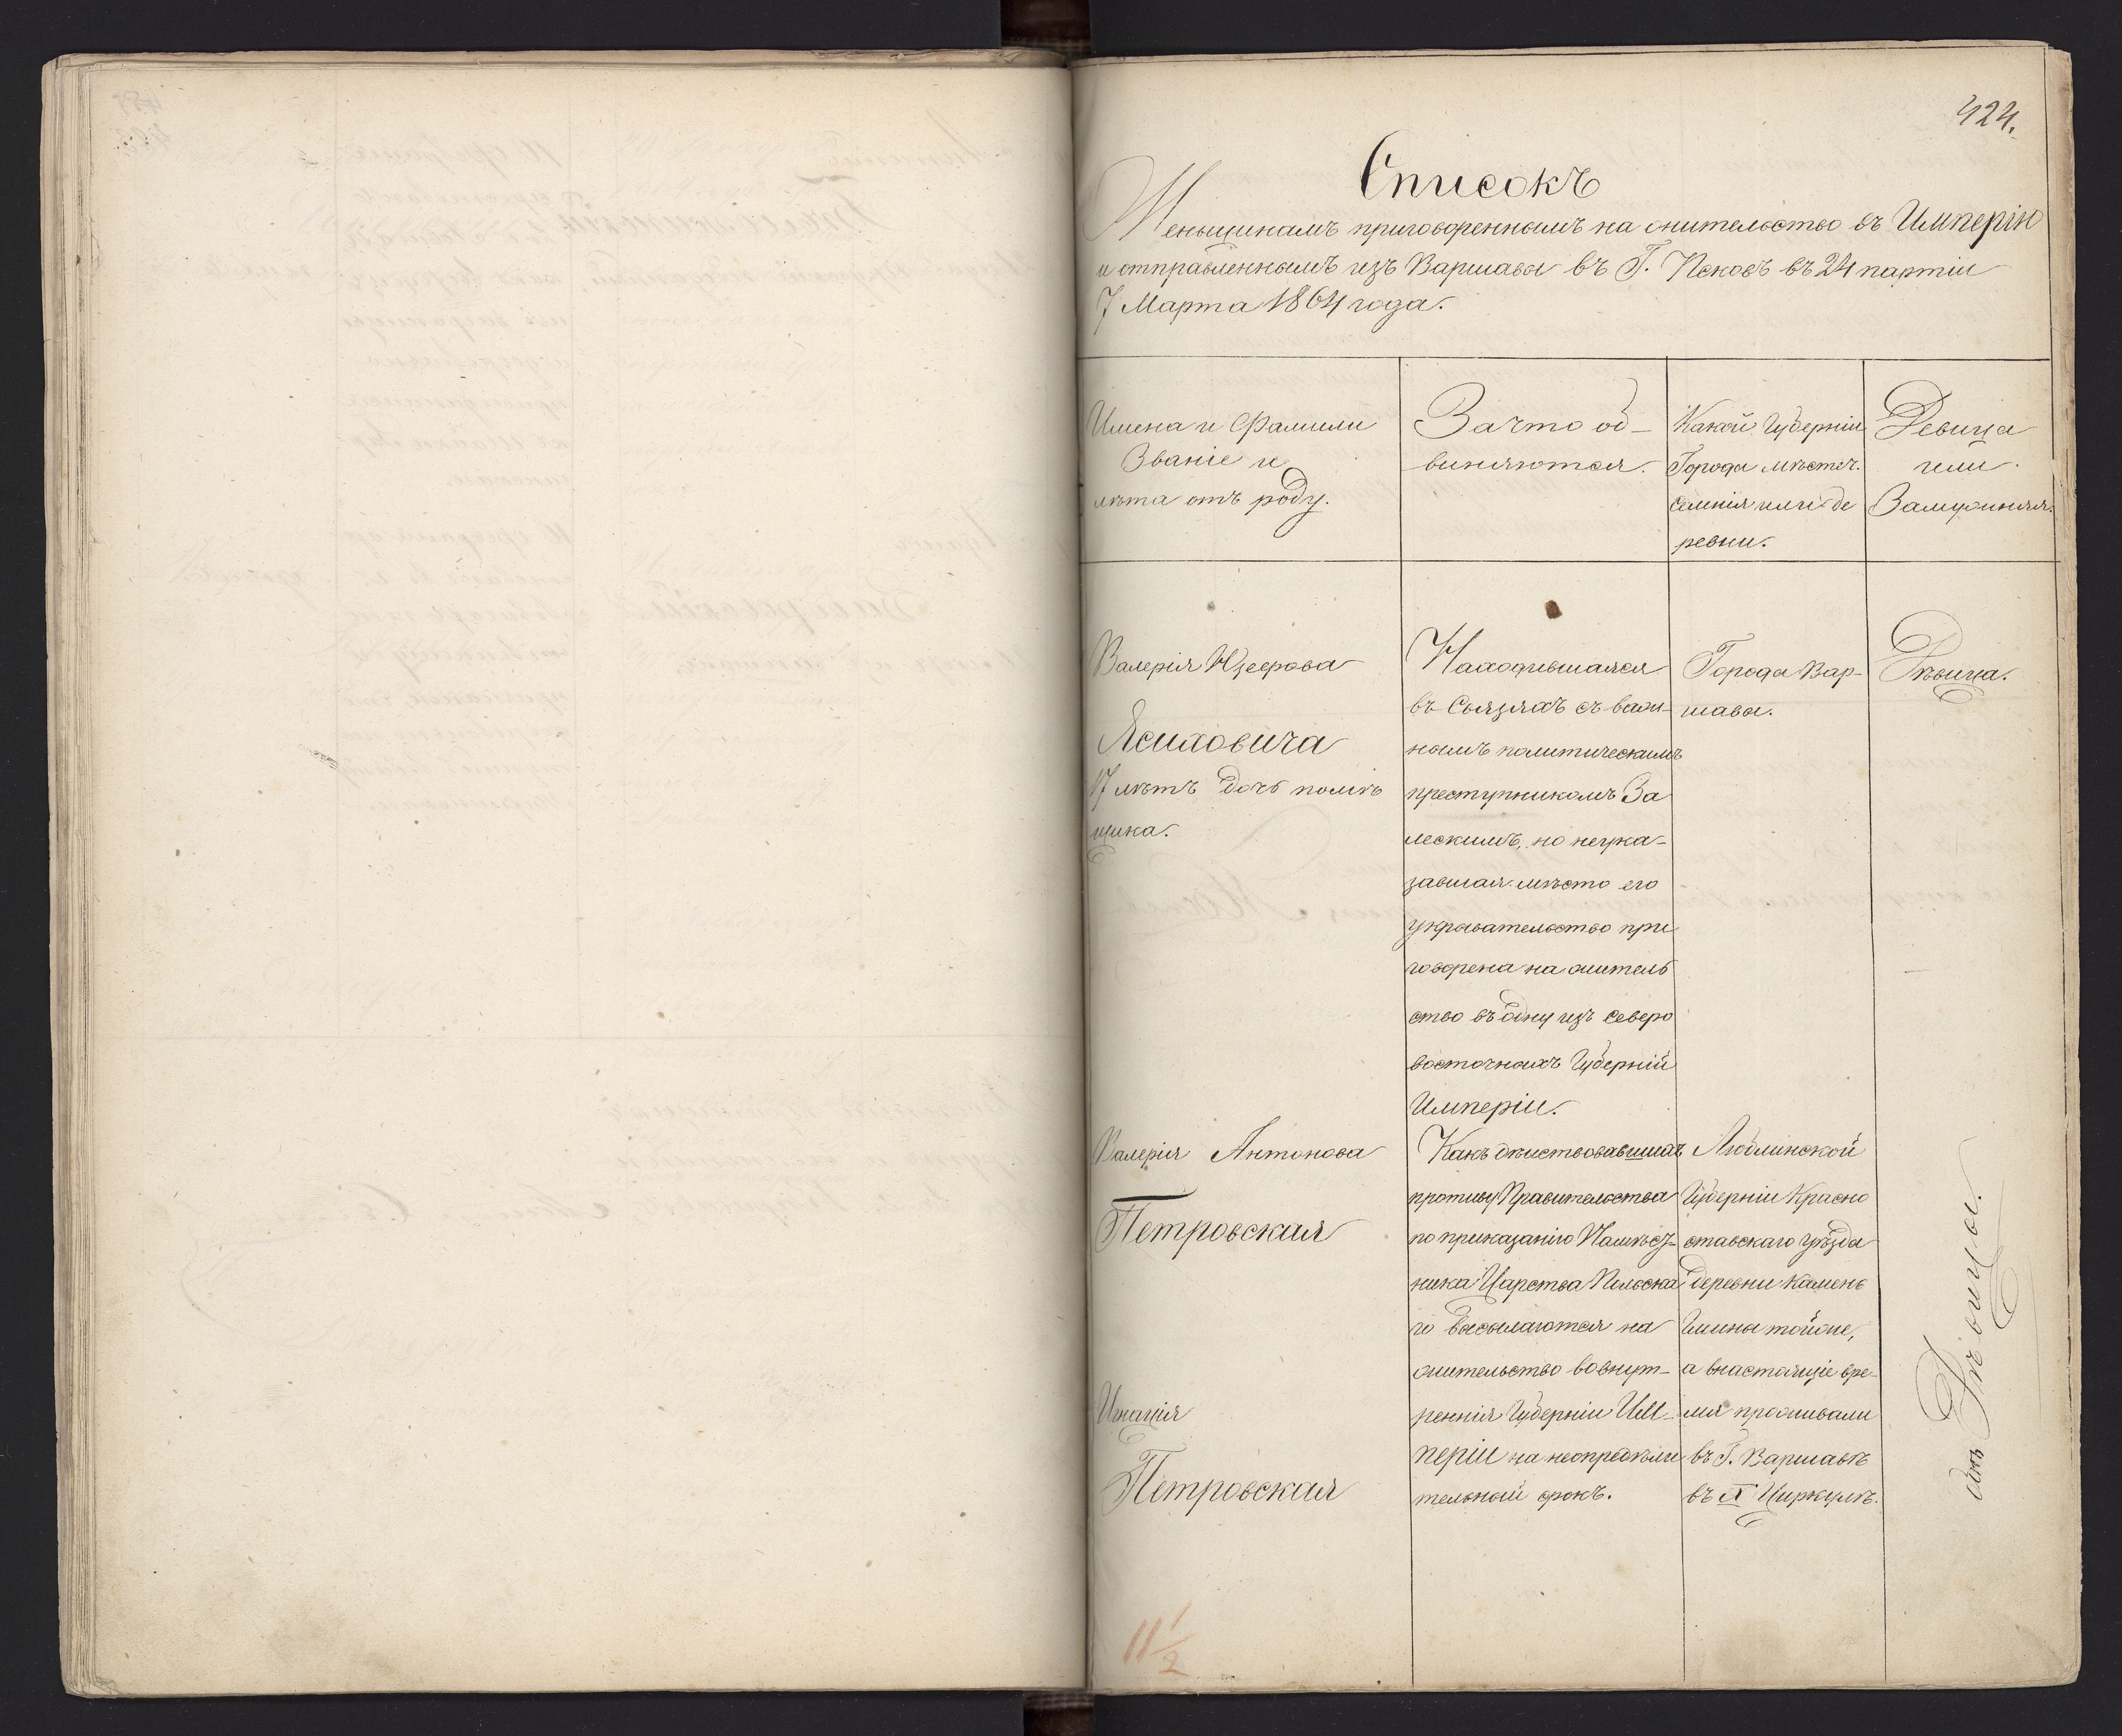 424.
Списокъ
Женьщинамъ приговореннымъ на жительство въ Имперію
и отправленнымъ изъ Варшавы въ Г. Псковъ въ 24 партіи
7 Марта 1864 года.
Имена и Фамили
Званіе и
лѣта отъ роду.
За что об-
виняются.
Какой Губерніи
Города мѣстеч.
селенія или де
ревни.
Девица
или
Замужняя.
Валерія Юзефова
Ясиховича
17 лѣтъ дочь помѣ
щика.
Находившаяся
въ связяхъ съ важ-
нымъ политическимъ
преступникомъ За
лескимъ, но неука-
завшая мѣсто его
укрывательство при
говорена на житель
ство въ одну изъ северо
восточныхъ Губерній
Имперіи.
Города Вар-
шавы.
Дѣвица.
Валерія Антонова
Петровская
Игнація
Петровская
Какъ дѣиствовавшихъ
противу Правительства
по приказанію Намѣст-
ника Царства Польска
го высылаются на
жительство вовнут-
реннія Губерніи Им-
періи на неопредѣли
тельный срокъ.
Люблинской
Губерніи Красно
ставскаго Уѣзда
деревни Камень
Гмины тойже,
а внастоящіе вре-
мя проживали
въ Г. Варшавѣ
въ Циркулѣ.
Дѣвицы.
11 1/2